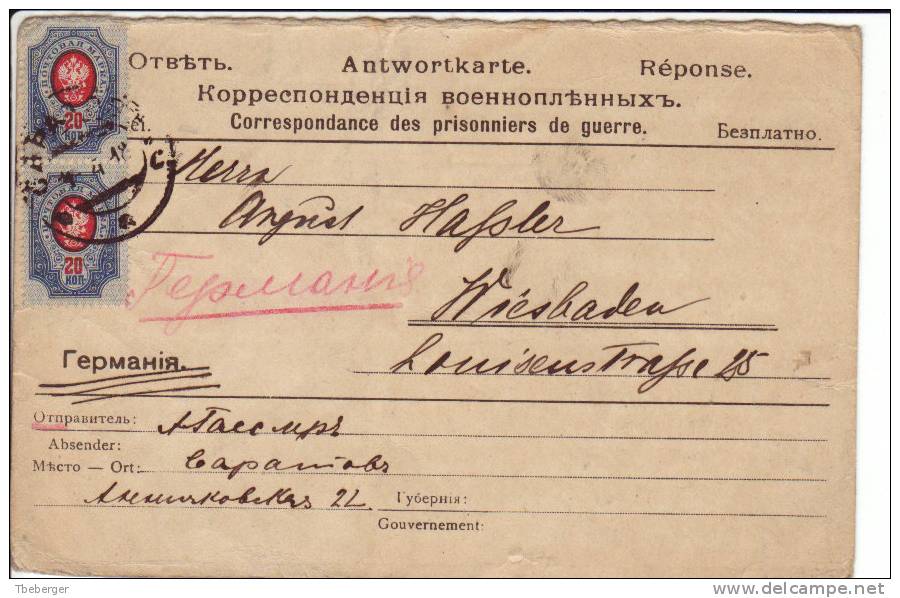 Отвѣть. Antwortkarte. Réponse.
Корреспонденція военноплѣнныхъ.
Correspondance des prisonniers de guerre. Безплатно.
ПОЧТОВАЯ МАРКА
20
КОП
20
КОП
Herrn
August Haßler
Германія
Wiesbaden
Германія.
Louisenstraße 25
Отправитель:
Absender:
Мѣсто — Ort: Саратовъ
22 Губернія:
Gouvernement:
Tbeberger
delcampe.net